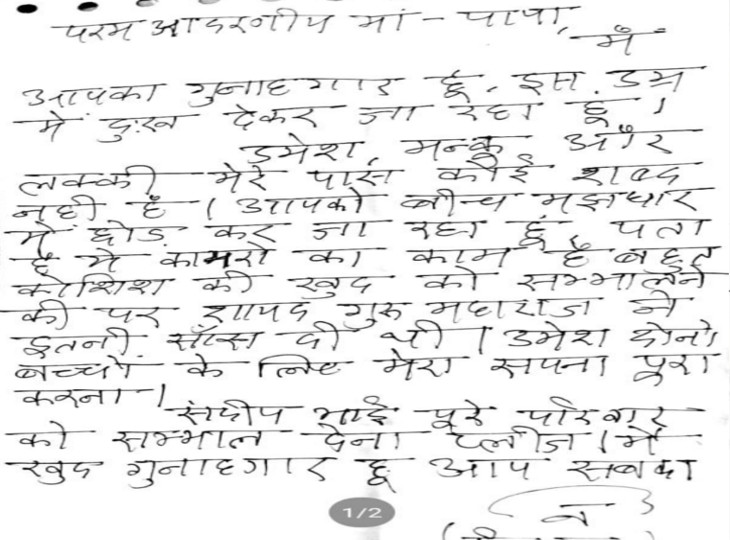 परम आदरणीय मां - पापा,
मैं
आपका गुनाहगार हूँ, इस उम्र
में दुःख देकर जा रहा हूँ।
उमेश, मन्कू और
लक्की मेरे पास कोई शब्द
नही है। आपको बीच मझधार
में छोड़ कर जा रहा हूं, पता
है ये कायरो का काम है बहुत
कोशिश की खुद को सम्भालने
की पर शायद गुरु महाराज ने
इतनी साँस दी थी। उमेश दोनो
बच्चों के लिए मेरा सपना पूरा
करना।
संदीप भाई पूरे परिवार
को सम्भाल देना प्लीज। में
खुद गुनाहगार हू आप सबका
1/2